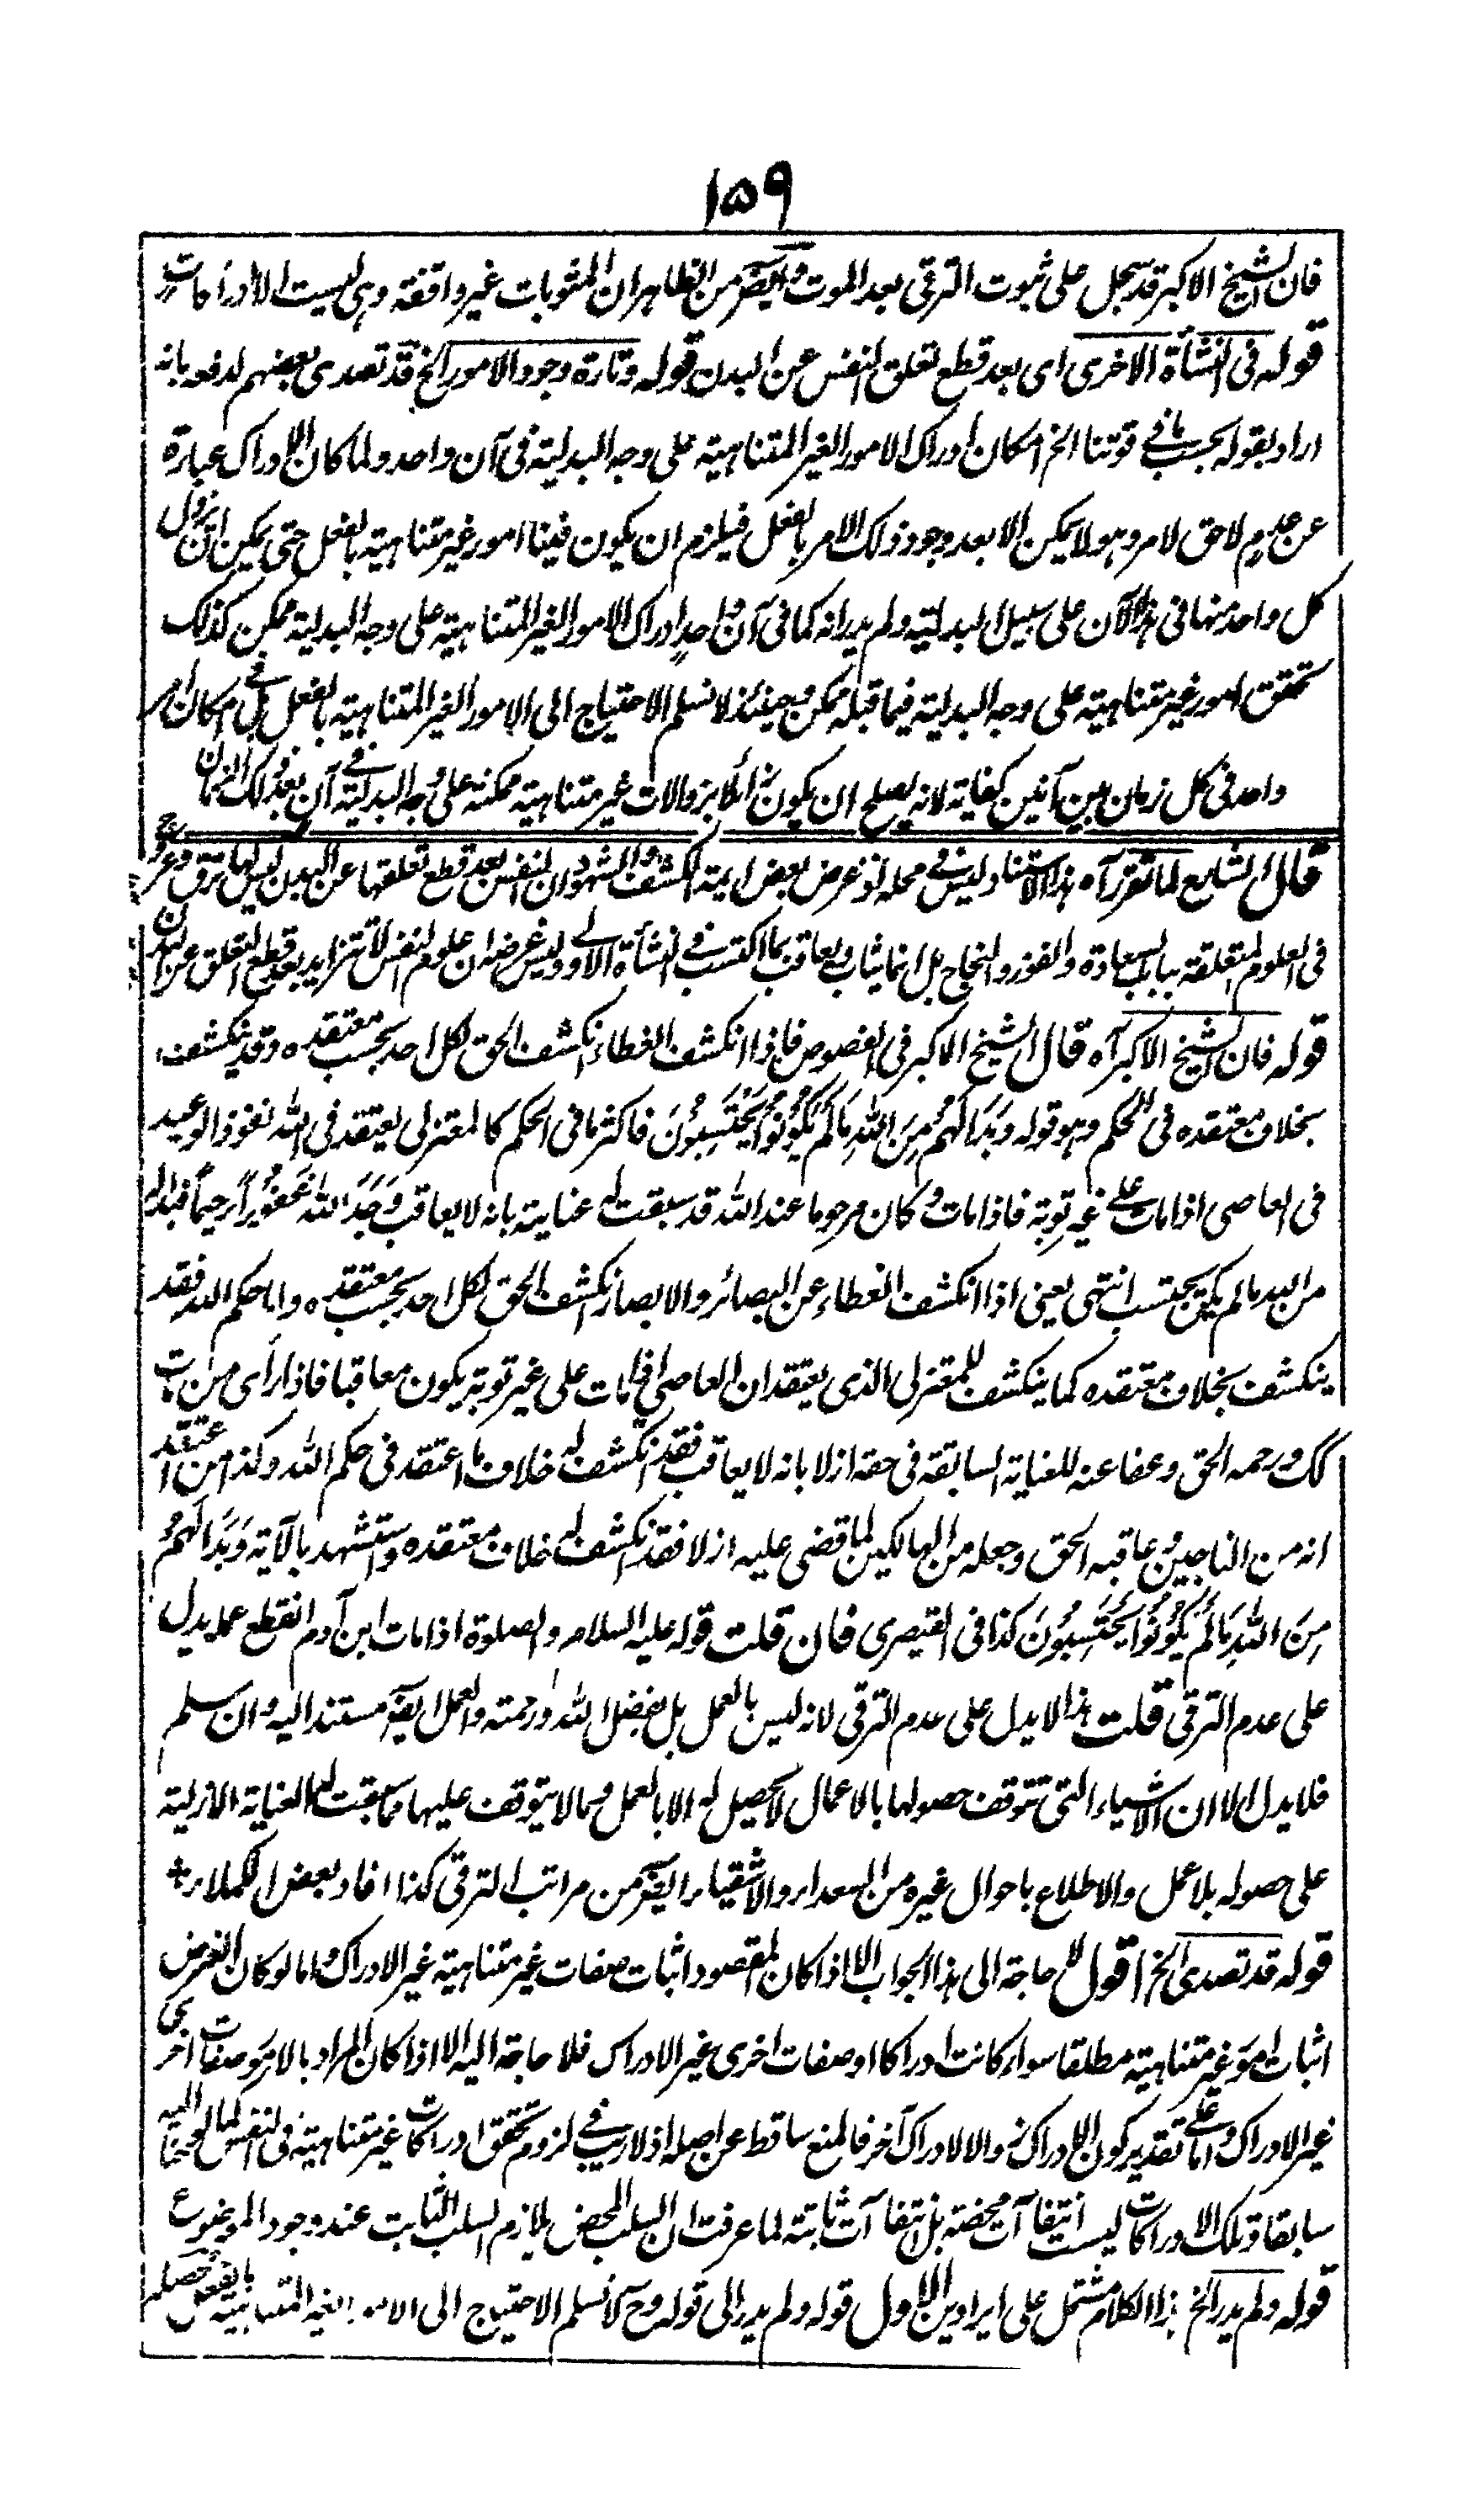 ١٥٩
فان الشيخ الاكبر قد سجل على ثبوت الترقى بعد الموت وايضا من الظاهر ان المثوبات غير واقفة وهى ليست الا ادراكات
قوله فى النشأة الاخرى اى بعد قطع تعلق النفس عن البدن قوله وتارة وجود الامور الخ قد تصدى بعضهم لدفعه بانه
اراد بقوله بحسب ما فى قوتنا الخ امكان ادراك الامور الغير المتناهية على وجه البدلية فى آن واحد ولما كان الادراك عبارة
عن عدم لاحق لامر وهو لا يمكن الا بعد وجود ذلك الامر بالفعل فيلزم ان يكون فينا امور غير متناهية بالفعل حتى يمكن ان يزول
كل واحد منها فى هذا الآن على سبيل البدلية ولم يدر انه كما فى آن واحد ادراك الامور الغير المتناهية على وجه البدلية ممكن كذلك
تحقق امور غير متناهية على وجه البدلية فيما قبله ممكن وحينئذ لا نسلم الاحتياج الى الامور الغير المتناهية بالفعل بل فى امكان امر
واحد فى كل زمان بين آنين كفاية لانه يصلح ان يكون زائلا بزوالات غير متناهية ممكنة على وجه البدلية فى آن بعد ذلك الزمان
قال الشارح لما تقرر آه هذا الاستناد ليس فى محله لو عرض بعض ايمة الكشف والشهود ان النفس بعد قطع تعلقها عن البدن ليس لها ترق وعروج
فى العلوم المتعلقة بباب السعادة والفوز والنجاح بل انما يثاب ويعاقب بما اكتسب فى النشأة الاولى وليس غرضه ان علوم النفس لا تتزايد بعد قطع التعلق عن البدن
قوله فان الشيخ الاكبر آه قال الشيخ الاكبر فى الفصوص فاذا انكشف الغطاء انكشف الحق لكل احد بحسب معتقده وقد ينكشف
بخلاف معتقده فى الحكم وهو قوله وَبَدَا لَهُم مِنَ اللهِ مَا لَمْ يَكُونُوا يَحْتَسِبُونَ فاكثرها فى الحكم كالمعتزلى يعتقد فى الله نفوذ الوعيد
فى العاصى اذا مات على غير توبة فاذا مات وكان مرحوما عند الله قد سبقت له عناية بانه لا يعاقب وَجَدَ الله غَفُوْراً رحيماً فبدا له
من الله ما لم يكن يحتسب انتهى يعنى اذا انكشف الغطاء عن البصائر والابصار انكشف الحق لكل احد بحسب معتقده واما حكم الله فقد
ينكشف بخلاف معتقده كما ينكشف للمعتزلى الذى يعتقد ان العاصى اذا مات على غير توبة يكون معاقبا فاذا رأى من مات
كك ورحمه الحق وعفا عنه للعناية السابقة فى حقه ازلا بانه لا يعاقب فقد انكشف له خلاف ما اعتقد فى حكم الله وكذا من اعتقد
انه من الناجين وعاقبه الحق وجعله من الهالكين لما قضى عليه ازلا فقد انكشف له خلاف معتقده واستشهد بالآية وَبَدَا لَهُمْ
مِنَ اللهِ مَا لَمْ يَكُونُوا يَحْتَسِبُونَ كذا فى القيصرى فان قلت قوله عليه السلام والصلوة اذا مات ابن آدم انقطع عمله يدل
على عدم الترقى قلت هذا لا يدل على عدم الترقى لانه ليس بالعمل بل بفضل الله ورحمته والعمل ايضا مستند اليه وان سلم
فلا يدل الا ان الاشياء التى تتوقف حصولها بالاعمال لا تحصيل له الا بالعمل وما لا يتوقف عليها فما سبقت له العناية الازلية
على حصوله بلا عمل والاطلاع باحوال غيره من السعداء والاشقياء ايضا من مراتب الترقى كذا افاد بعض الكملاء
قوله قد تصدى الخ اقول لا حاجة الى هذا الجواب الا اذا كان المقصود اثبات صفات غير متناهية غير الادراك واما لو كان الغرض
اثبات امور غير متناهية مطلقا سواء كانت ادراكا او صفات اخرى غير الادراك فلا حاجة اليه الا اذا كان المراد بالامور صفات اخرى
غير الادراك واما على تقدير كون الادراك زوالا لادراك آخر فالمنع ساقط عن اصله اذ لا ريب فى لزوم تحقق ادراكات غير متناهية فى النفس كما الجأنا اليه
سابقا وتلك الادراكات ليست انتفاآت محضة بل انتفاآت ثابتة لما عرفت ان السلب المحض يلازم السلب الثابت عند وجود الموضوع
قوله ولم يدر الخ هذا الكلام مشتمل على ايرادين الاول قوله ولم يدر الى قوله وح لا نسلم الاحتياج الى الامور الغير المتناهية بالفعل حصله